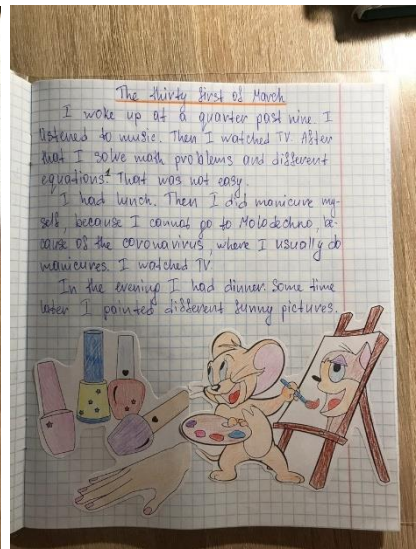 The thirty first of March
I woke up at a quarter past nine. I
listened to music. Then I watched TV. After
that I solve math problems and different
equations. That was not easy.
I had lunch. Then I did manicure my-
self, because I cannot go to Molodechno, be-
cause of the coronavirus, where I usually do
manicures. I watched TV.
In the evening I had dinner. Some time
later I painted different funny pictures.